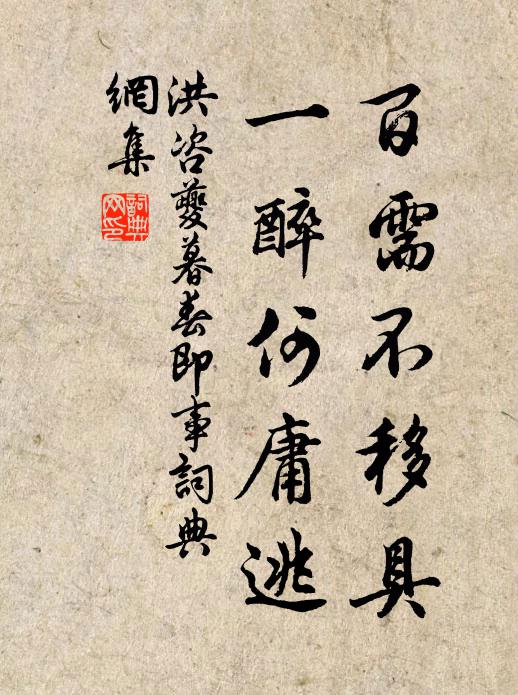 百需不移具
一醉何庸逃
洪咨夔暮春即事詞典
網集
詞典網印